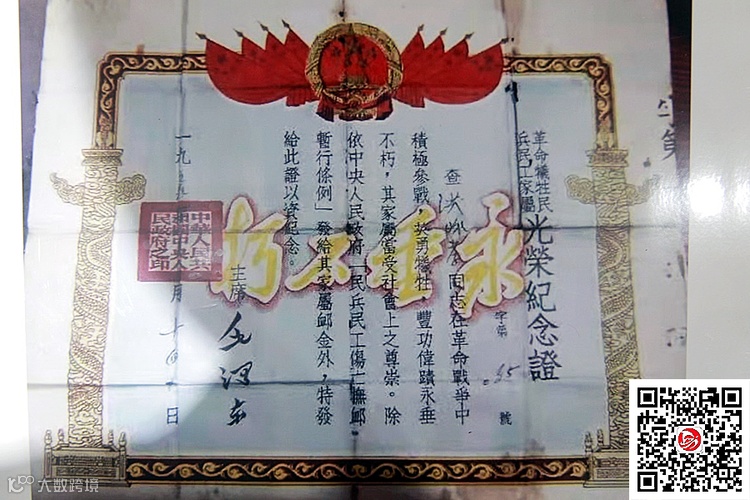 字第
革命犧牲民
兵民工家屬
光榮紀念證
字第 65 號
查洪 同志在革命戰爭中
積極參戰,英勇犧牲,豐功偉蹟永垂
不朽,其家屬當受社會上之尊崇。除
依中央人民政府「民兵民工傷亡撫卹
暫行條例」發給其家屬卹金外,特發
給此證以資紀念。
永垂不朽
主席 毛澤東
一九五 月十 日
中華人民共
和國中央人
民政府之印
大数跨境